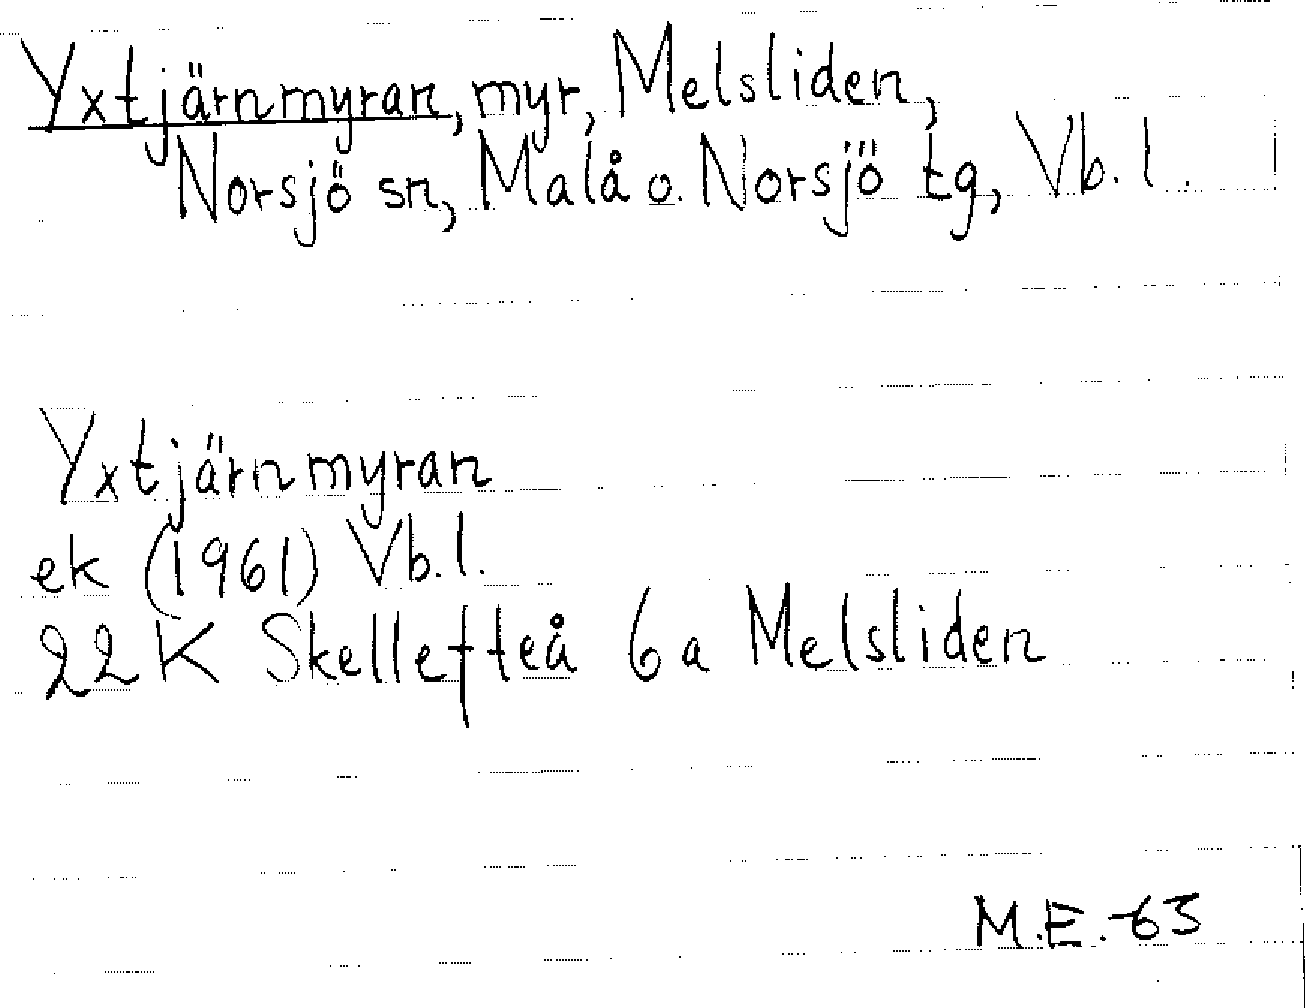 Yxtjärnmyran, myr, Melsliden,
Norsjö sn, Malå o. Norsjö tg, Vb. l.
Yxtjärnmyran
ek (1961) Vb. l.
22 K Skellefteå 6 a Melsliden
M.E. -63